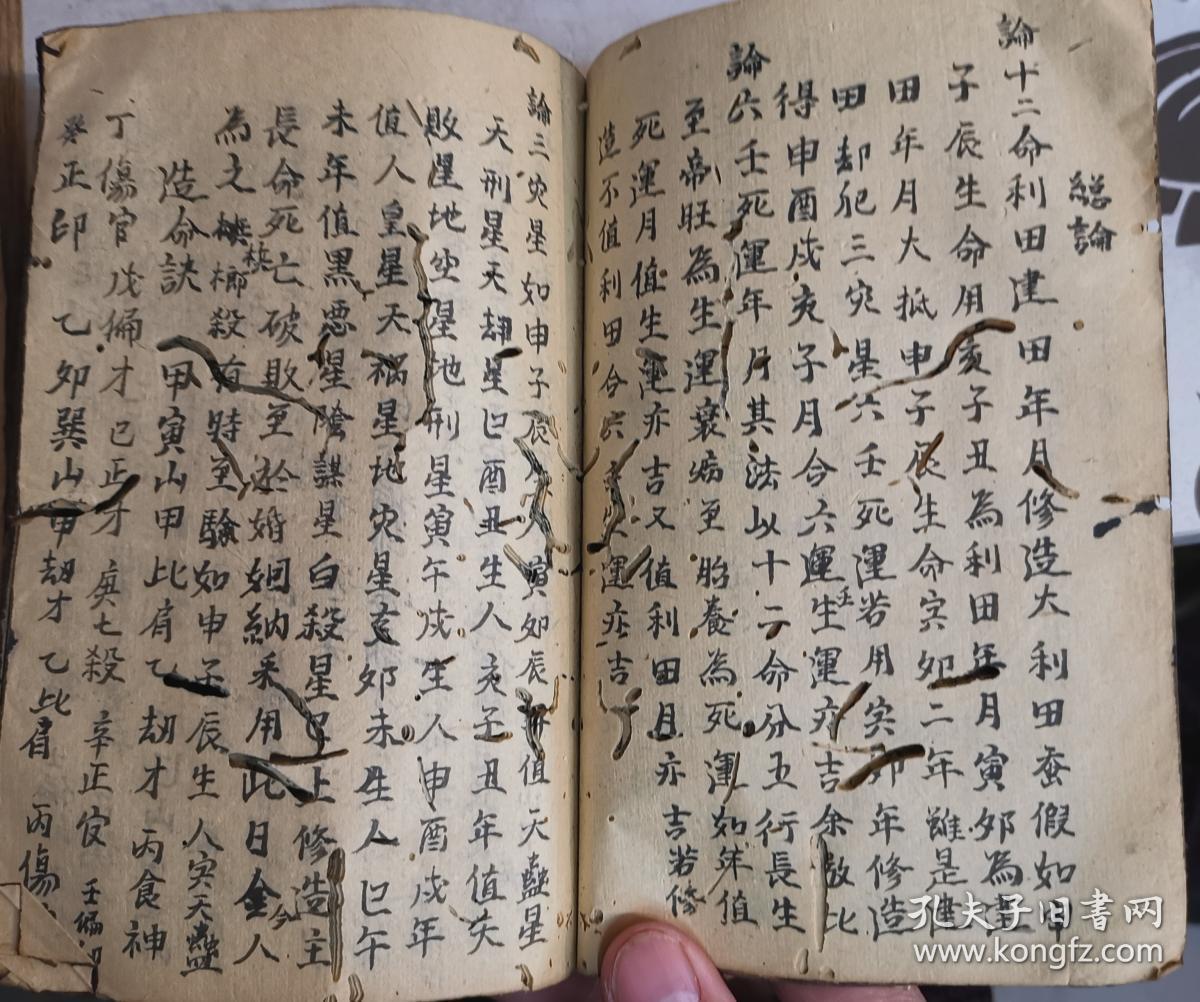 總論
論十二命利田建田年月修造大利田蚕假如申
子辰生命用亥子丑為利田年月寅夘為
田年月大抵申子辰生命寅夘二年雖是
田却犯三灾星六壬死運若用寅夘年修造
得申酉戌亥子月合六壬生運亦吉余倣比
論六壬死運年月其法以十二命分五行長生
至帝旺為生運衰病至胎養為死運如年值
死運月值生運亦吉又值利田且亦吉若修
造不值利田合六運亦吉
論三灾星如申子辰人寅夘辰值天蠱星
天刑星天劫星巳酉丑生人亥子丑年值天
敗星地灾星地刑星寅午戌生人申酉戌年
值人皇星天禍星地灾星亥夘未生人巳午
未年值黑惡星陰謀星白殺星已上修造主
長命死亡破敗至於婚姻納采用此日金人
今
為之横榔殺有時至驗如申子辰生人寅天蠱
造命訣 甲寅山甲比肩乙劫才丙食神
丁傷官戊偏才己正才庚七殺辛正官壬偏印
癸正印 乙夘巽山甲劫才乙比肩丙傷
孔夫子旧書网
www.kongfz.com